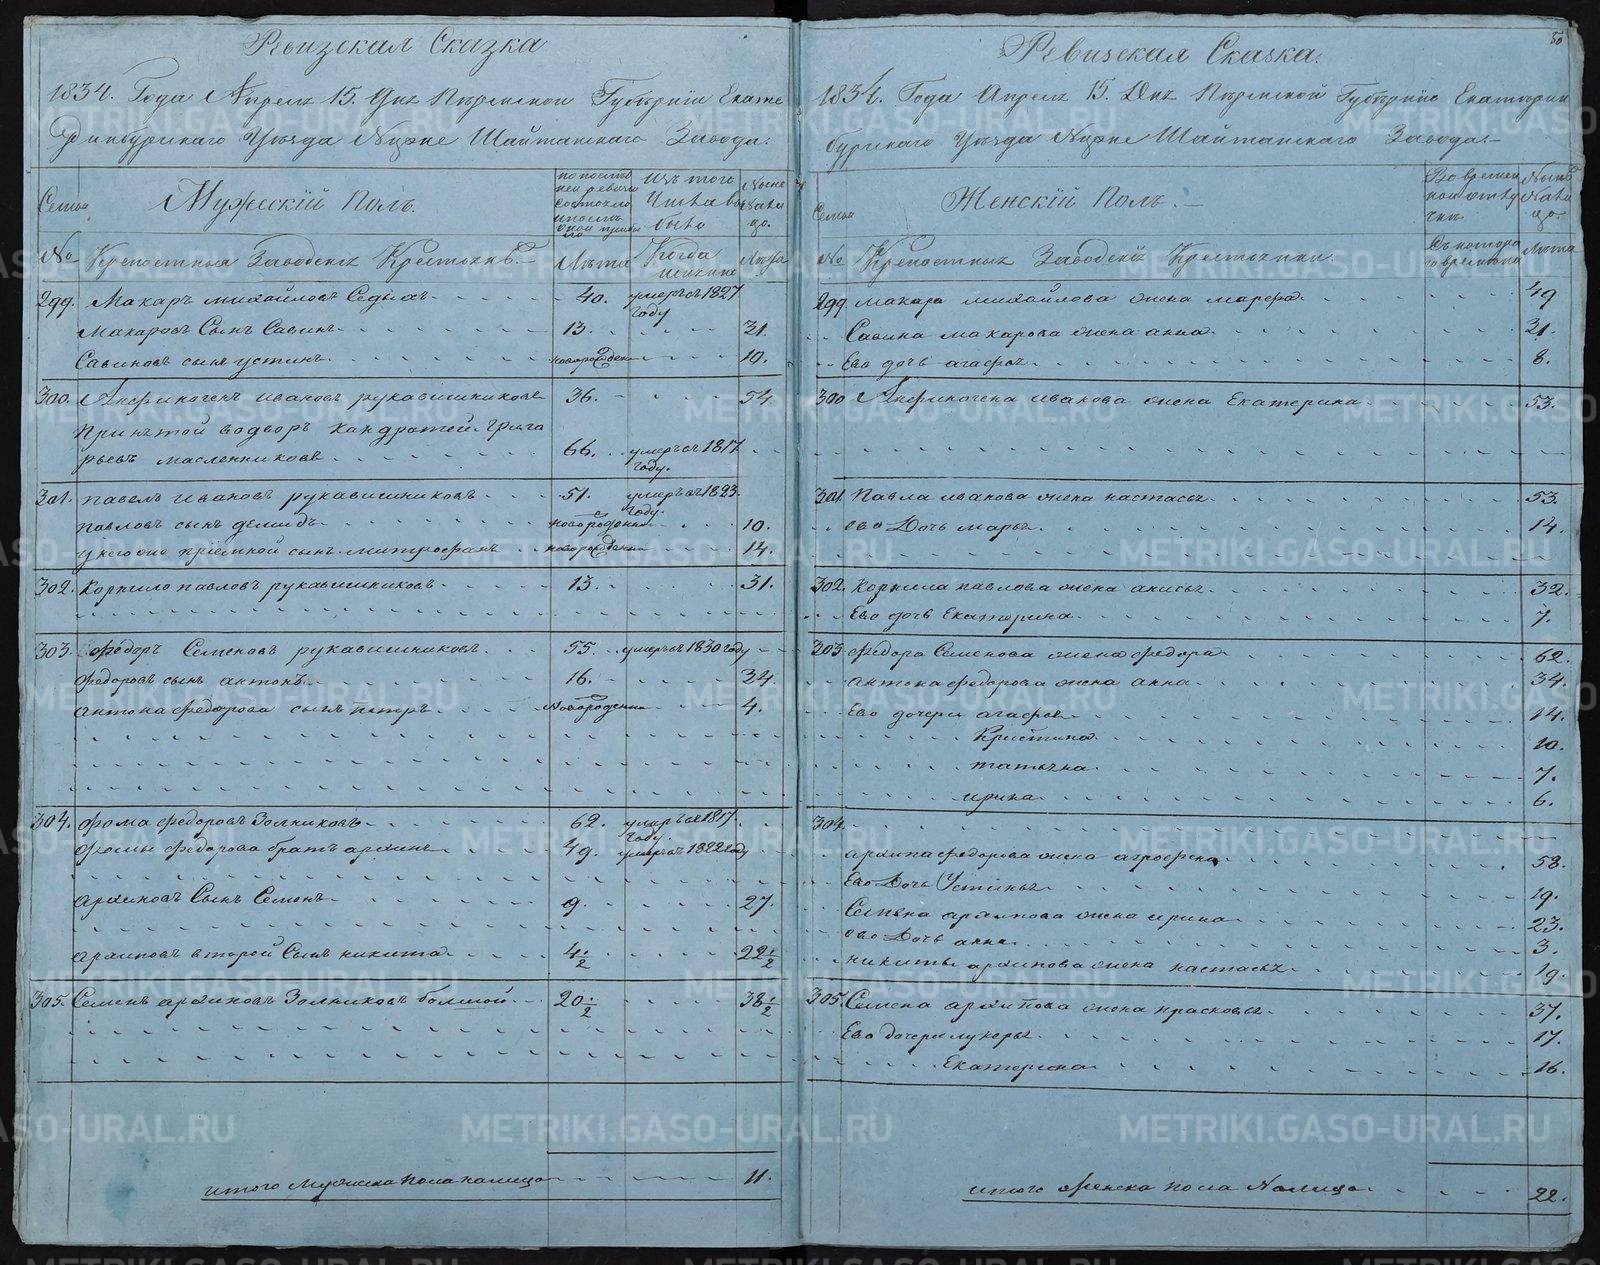 Ревизская Сказка
1834. Года Апреля 15. Дня Пермской Губернии Екате
ринбургского Уезда Нижне Шайтанского Завода:
Семьи
Мужескій Полъ.
по последней ревизіи состояло и после оной прибыло
Изъ того Числа выбыло
Ныне Налицо.
№
Крепостныя Заводскія Крестьяне.
Лѣта
Когда именно
Лѣта
299. Макаръ михайловъ Седыхъ 40. умеръ въ 1827 году
Макаровъ Сынъ Савинъ 13. 31.
Савиновъ сынъ устинъ новорожден 10.
300. Анфиногенъ ивановъ рукавишниковъ 36. 54
Принятой водворъ кандратей Грига
рьевъ масленниковъ 66. умеръ въ 1817 году.
301. павелъ ивановъ рукавишниковъ 51. умеръ въ 1823 году.
павловъ сынъ демидъ новорожденн 10.
у него же пріемной сынъ митрофанъ новорожденн 14.
302. Корнило павловъ рукавишниковъ 13. 31.
303. Федоръ Семеновъ рукавишниковъ 55. умеръ въ 1830 году
Федоровъ сынъ антонъ 16. 34
антона Федорова сынъ петръ Новорожденн 4.
304. Фома Федоровъ Золниковъ 62. умеръ въ 1817. году
Фомы Федорова братъ архипъ 49. умеръ въ 1822 году
архиповъ Сынъ Семенъ 9. 27.
архиповъ второй Сынъ никита 4 1/2 22 1/2
305. Семенъ архиповъ Золниковъ болшой 20 1/2 38 1/2
итого Мужеска пола налицо 11.
50
Ревизская Сказка.
1834. Года Апреля 15. Дня Пермской Губерніи Екатерин
бургского Уезда Нижне Шайтанского Завода:
Семьи
Женскій Полъ.
Во временной отлучки
Ныне Налицо.
№
Крепостныя Заводскія Крестьянки.
Съ которого времени
Лѣта
299. макара михайлова жена марфа 49
Савина макарова жена анна 31.
Ево дочь агафья 8.
300 Анфиногена иванова жена Екатерина 53.
301 Павла иванова жена настасья 53.
ево Дочь марья 14.
302. Корнила павлова жена анисья 32.
Ево дочь Екатерина 7.
303 Федора Семенова жена федора 62.
антона федорова жена анна 34.
Ево дочери агафья 14.
Кристина 10.
татьяна 7.
ирина 6.
304.
архипа федорова жена агрофена 58.
Ево Дочь Устинья 19.
Семена архипова жена ирина 23.
ево Дочь анна 3.
никиты архипова жена настасья 19.
305. Семена архипова жена прасковья 37.
Ево дочери лукерья 17.
Екатерина 16.
итого женска пола Налицо 22.